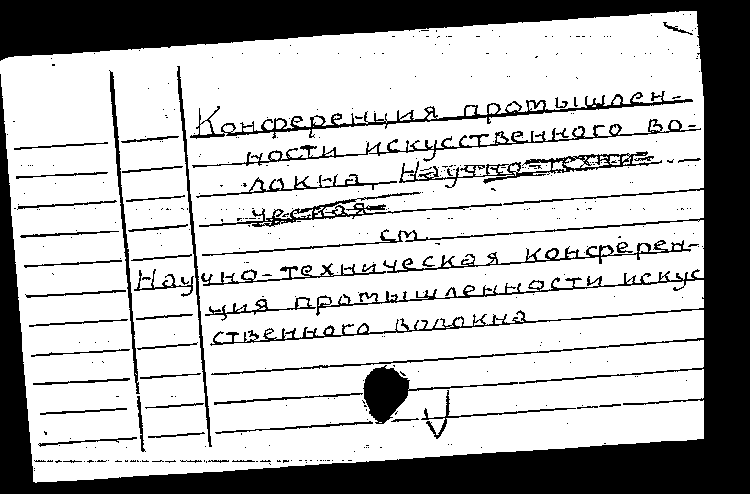 Конференция промышлен-
ности искусственного во-
локна, Научно-техни-
ческая
см
Научно-техническая конферен-
ция промышленности искус
ственного волокна